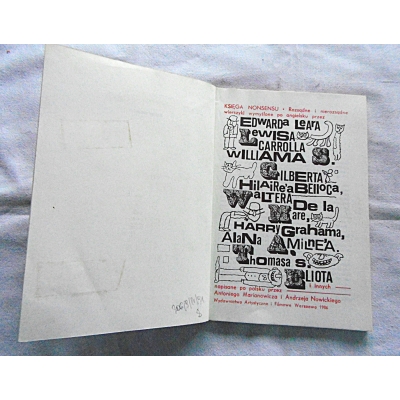 KSIĘGA NONSENSU • Rozsądne i nierozsądne
wierszyki wymyślone po angielsku przez
EDWARDA LEARA
LEWISA
CARROLLA
WILLIAMA S.
GILBERTA
HILAIRE'A BELLOCA,
WALTERA De la
Mare,
HARRY GRAHAMA,
ALANA A. MILNE'A,
Thomasa S.
ELIOTA
i innych
napisane po polsku przez
Antoniego Marianowicza i Andrzeja Nowickiego
Wydawnictwa Artystyczne i Filmowe Warszawa 1986